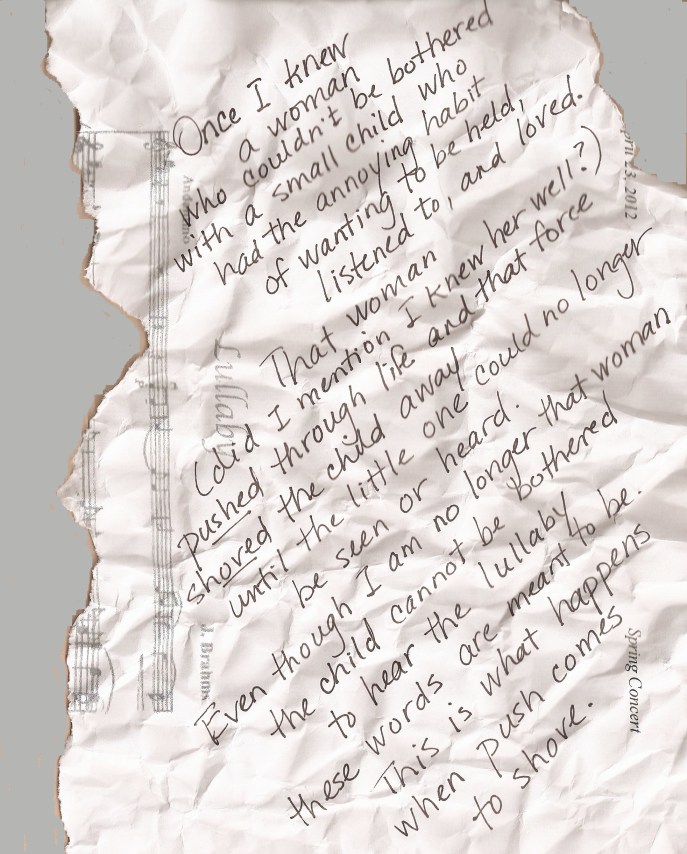 Once I knew
a woman
who couldn't be bothered
with a small child who
had the annoying habit
of wanting to be held,
listened to, and loved.
That woman
(did I mention I knew her well?)
pushed through life and that force
shoved the child away
until the little one could no longer
be seen or heard.
Even though I am no longer that woman
the child cannot be bothered
to hear the lullaby
these words are meant to be.
This is what happens
when push comes
to shove.
Lullaby
J. Brahms
2012
Spring Concert